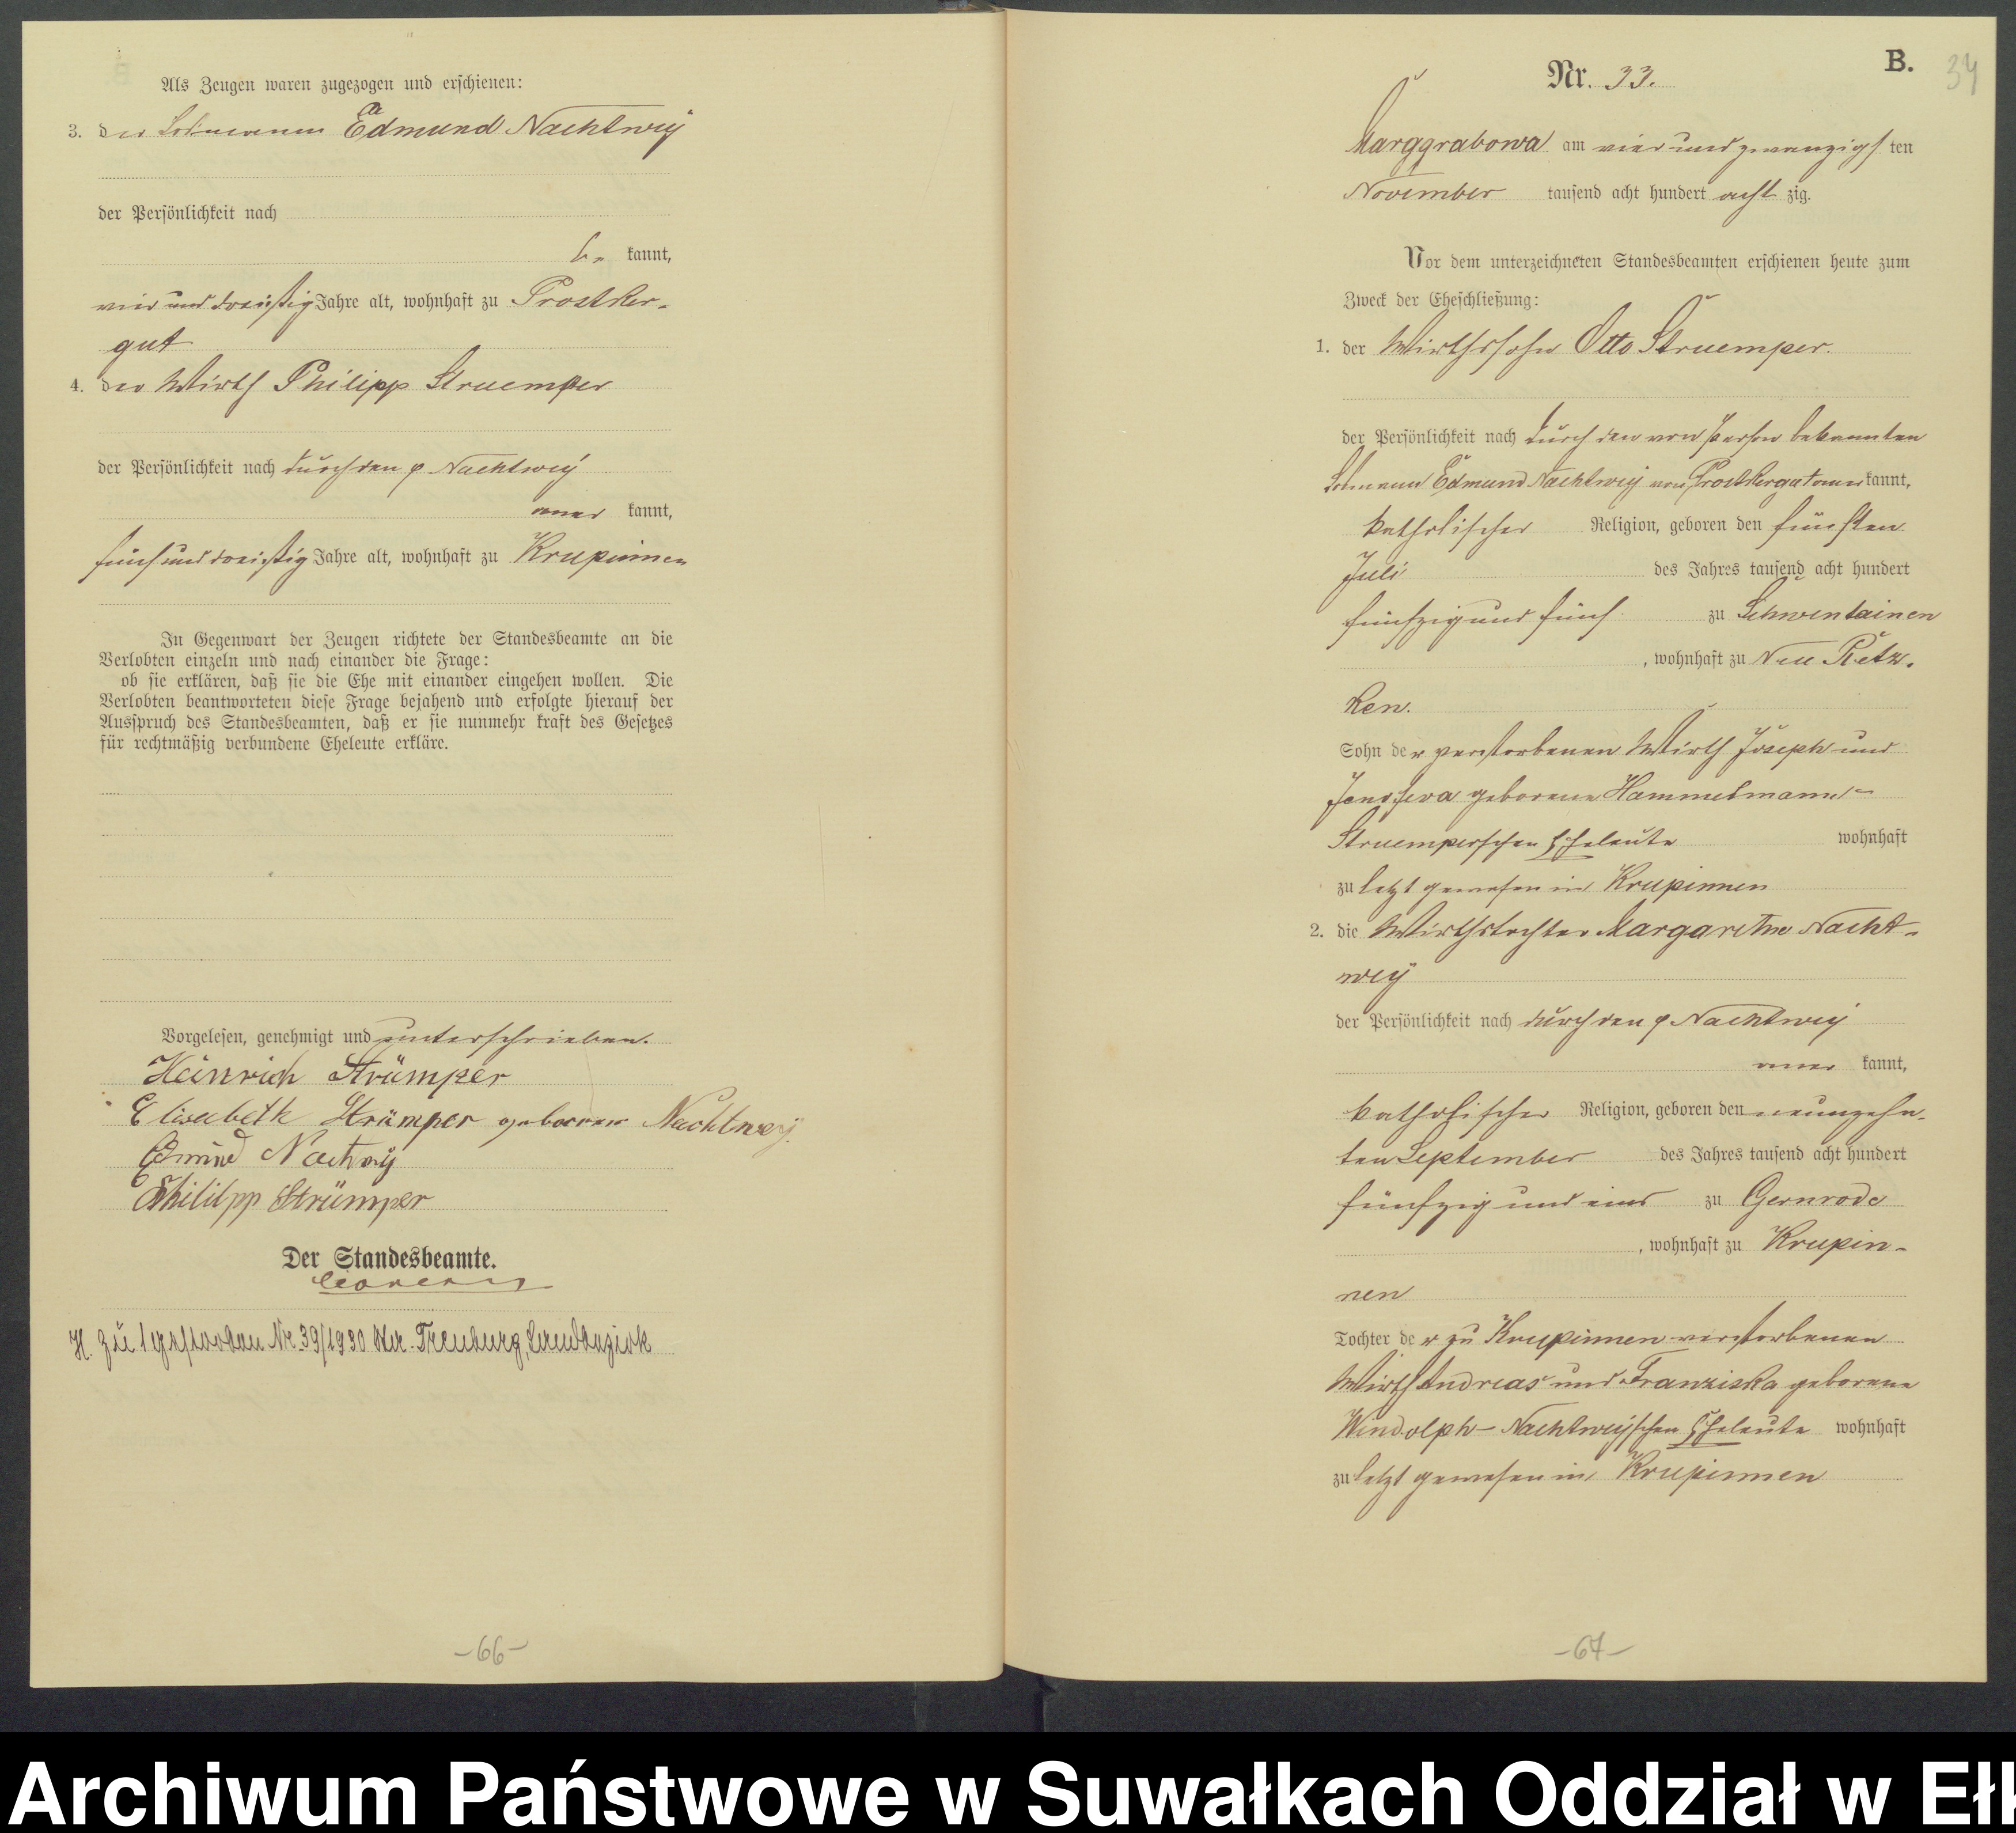 Als Zeugen waren zugezogen und erschienen:
3. der Edmund Nachtwey
der Persönlichkeit nach
be kannt,
vier und dreißig Jahre alt, wohnhaft zu Prostker-
gut
4. der Wirth Philipp Struemper
der Persönlichkeit nach durch den p Nachtwey
aner kannt,
fünf und dreißig Jahre alt, wohnhaft zu Krupinnen
In Gegenwart der Zeugen richtete der Standesbeamte an die
Verlobten einzeln und nach einander die Frage:
ob sie erklären, daß sie die Ehe mit einander eingehen wollen. Die
Verlobten beantworteten diese Frage bejahend und erfolgte hierauf der
Ausspruch des Standesbeamten, daß er sie nunmehr kraft des Gesetzes
für rechtmäßig verbundene Eheleute erkläre.
Vorgelesen, genehmigt und unterschrieben.
Heinrich Strümper
Elisabeth Strümper geborene Nachtwey
Edmund Nachtwey
Philipp Strümper
Der Standesbeamte.
H. zu 1 gestorben Nr. 39/1930 Treuburg, Landbezirk
-66-
B.
34
Nr. 33.
Marggrabowa am vier und zwanzigsten
November tausend acht hundert acht zig.
Vor dem unterzeichneten Standesbeamten erschienen heute zum
Zweck der Eheschließung:
1. der Wirthssohn Otto Struemper.
der Persönlichkeit nach durch den von Person bekannten
Edmund Nachtwey von Prostkergut aner kannt,
katholischer Religion, geboren den fünften
Juli des Jahres tausend acht hundert
fünfzig und fünf zu Schwentainen
, wohnhaft zu Neu Retz-
ken.
Sohn der verstorbenen Wirth Joseph und
Jenofeva geborene Hammelmann-
Struemperschen Eheleute wohnhaft
zu letzt gewesen in Krupinnen
2. die Wirthstochter Margarethe Nacht-
wey
der Persönlichkeit nach durch den p Nachtwey
aner kannt,
katholischer Religion, geboren den neunzehn-
ten September des Jahres tausend acht hundert
fünfzig und eins zu Gernrode
, wohnhaft zu Krupin-
nen
Tochter der zu Krupinnen verstorbenen
Wirth Andreas und Franziska geborene
Windolph-Nachtweyschen Eheleute wohnhaft
zu letzt gewesen in Krupinnen
-67-
Archiwum Państwowe w Suwałkach Oddział w Ełk